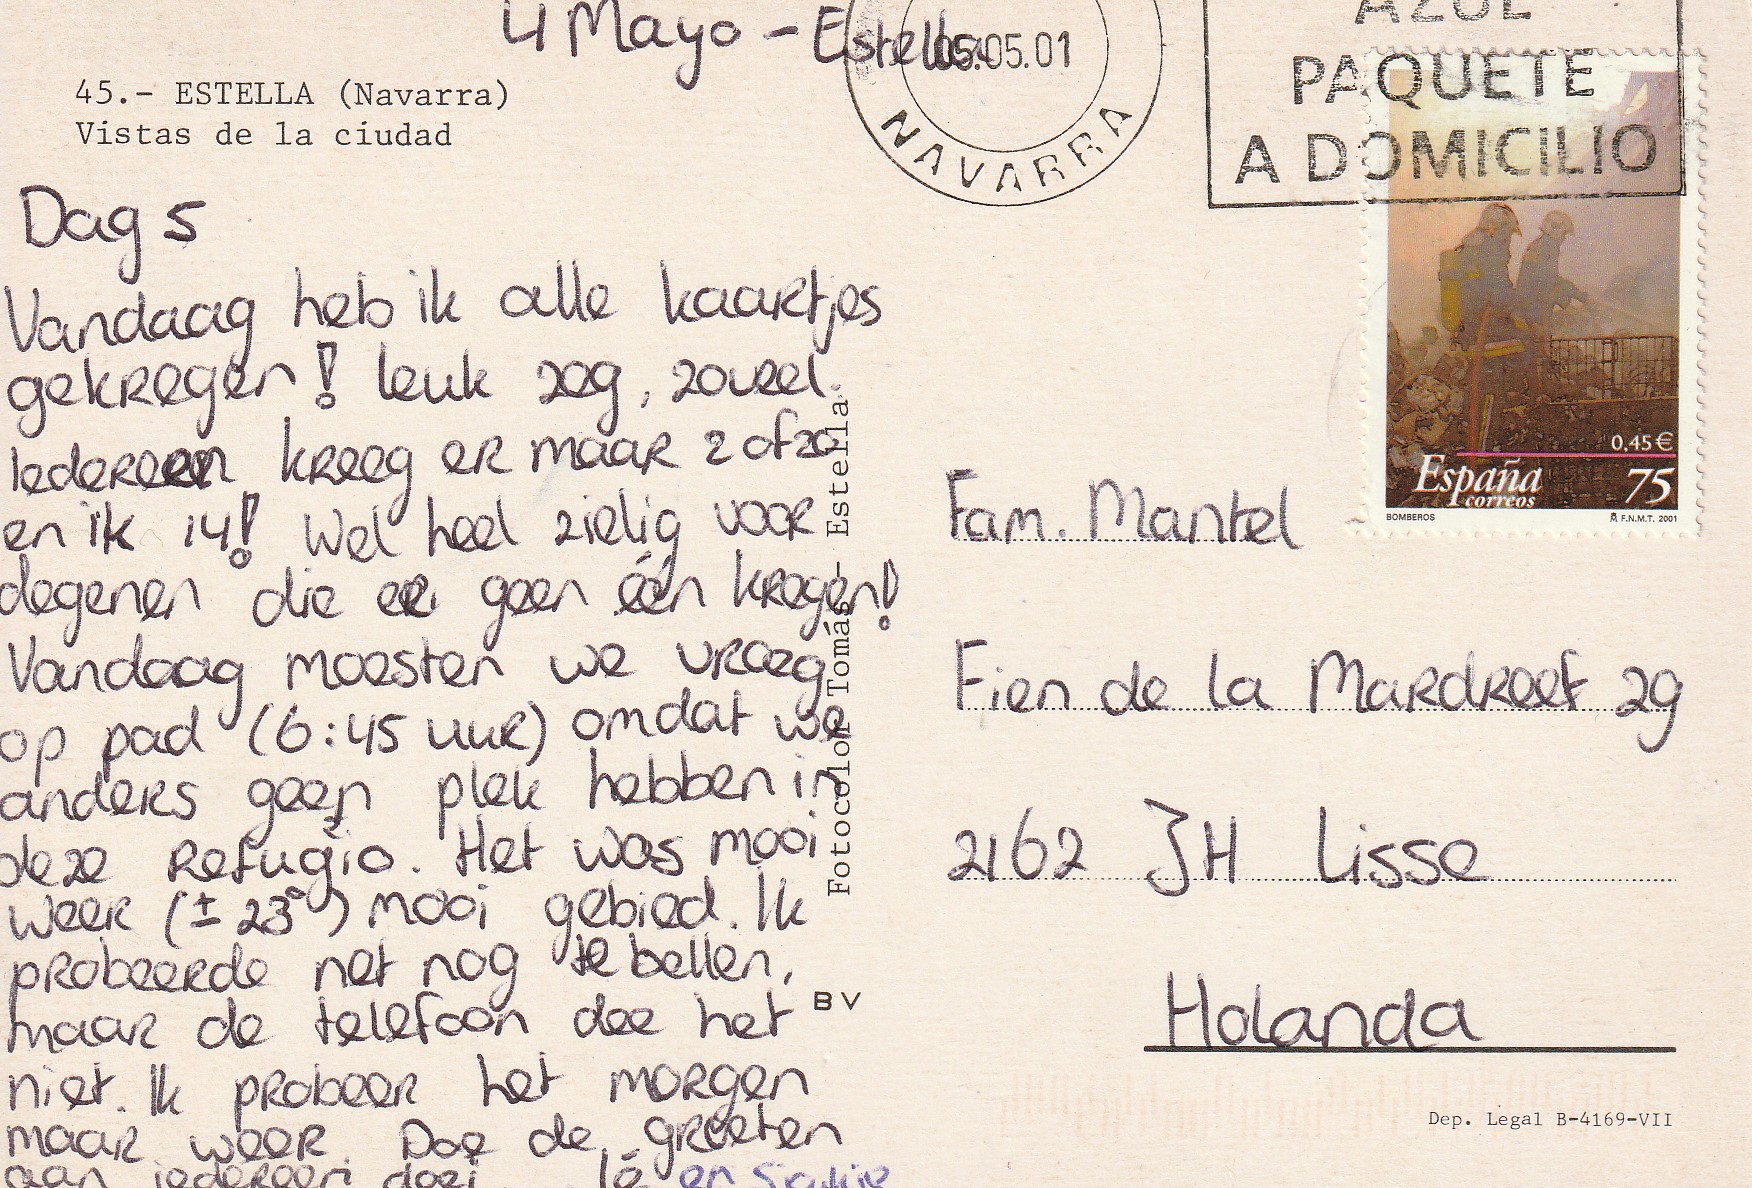 4 Mayo - Estella
05.05.01
NAVARRA
AZUL
PAQUETE
A DOMICILIO
45.- ESTELLA (Navarra)
Vistas de la ciudad
Dag 5
Vandaag heb ik alle kaartjes
gekregen! leuk zeg, zoveel.
Iedereen kreeg er maar 2 of zo
en ik 14! Wel heel zielig voor
degenen die er geen één kregen!
Vandaag moesten we vroeg
op pad (6:45 uur) omdat we
anders geen plek hebben in
deze Refugio. Het was mooi
weer (± 23°) mooi gebied. Ik
probeerde net nog te bellen,
maar de telefoon dee het
niet. Ik probeer het morgen
maar weer. Doe de groeten
aan iedereen doei. en
Fotocolor Tomás - Estella
BV
0,45 €
España
correos
75
BOMBEROS
F.N.M.T. 2001
Fam. Mantel
Fien de la Mardreef 29
2162 JH Lisse
Holanda
Dep. Legal B-4169-VII